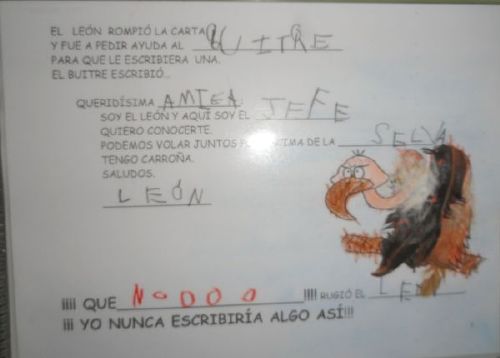 EL LEÓN ROMPIÓ LA CARTA
Y FUE A PEDIR AYUDA AL BUITRE
PARA QUE LE ESCRIBIERA UNA.
EL BUITRE ESCRIBIÓ..
QUERIDÍSIMA AMIGA:
SOY EL LEÓN Y AQUÍ SOY EL JEFE
QUIERO CONOCERTE.
PODEMOS VOLAR JUNTOS DE LA SELVA
TENGO CARROÑA.
SALUDOS.
LEÓN
¡¡¡¡ QUE NOOOO !!!! RUGIÓ EL LEÓN
¡¡¡ YO NUNCA ESCRIBIRÍA ALGO ASÍ!!!